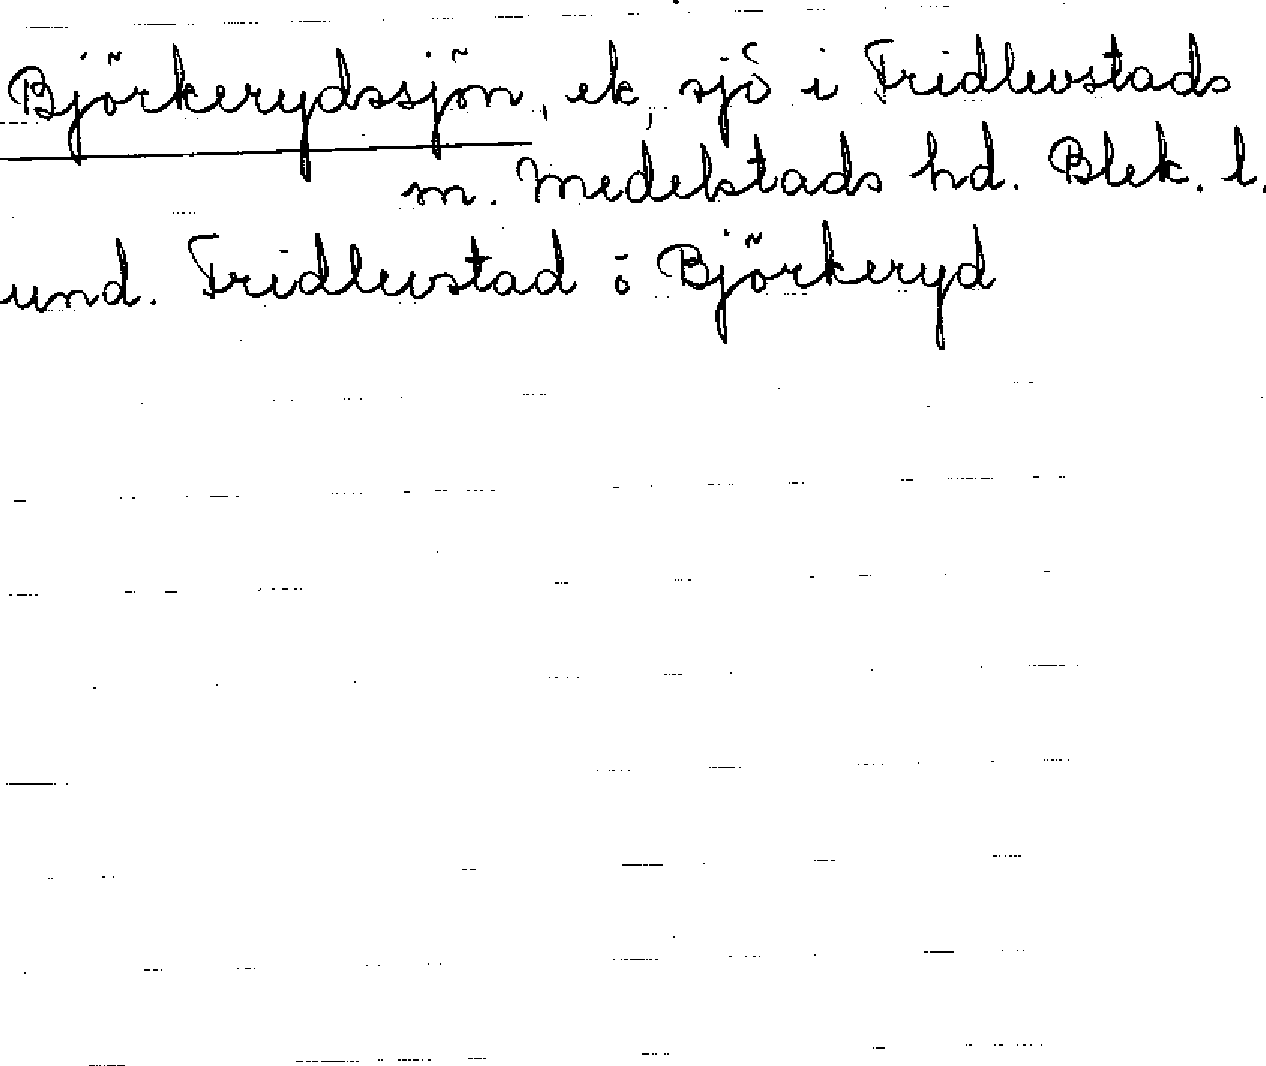 Björkerydssjön, ek, sjö i Fridlevstads
m. Medelstads hd. Blek. l.
und. Fridlevstad o Björkeryd